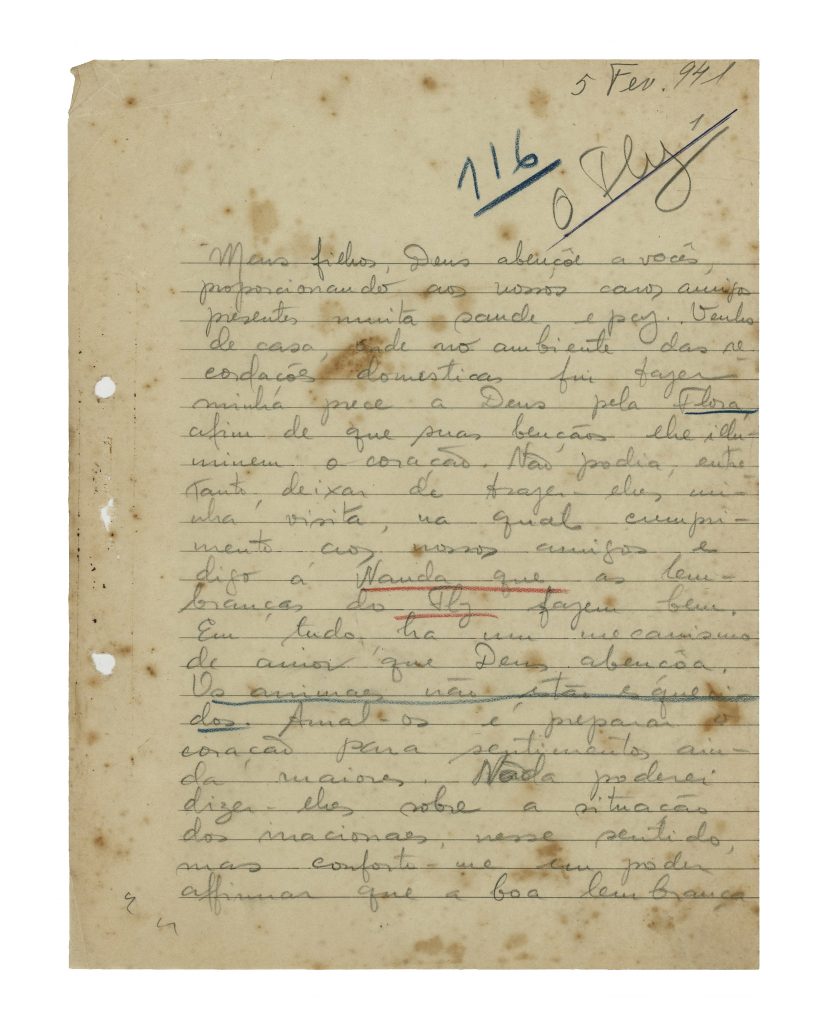 5 Fev. 941
116
O Fly
Meus filhos, Deus abençôe a vocês,
proporcionando aos nossos caros amigos
presentes muita saude e paz. Venho
de casa, onde no ambiente das re-
cordações domesticas fui fazer
minha prece a Deus pela Flora,
afim de que suas bençãos lhe illu-
minem o coração. Não podia, entre
tanto, deixar de trazer-lhes mi-
nha visita, na qual cumpri-
mento aos nossos amigos e
digo á Wanda que as lem-
branças do Fly fazem bem.
Em tudo ha um mecanismo
de amor que Deus abençôa.
Os animaes não estão esqueci
dos. Amal-os é preparar o
coração para sentimentos ain-
da maiores. Nada poderei
dizer-lhes sobre a situação
dos irracionaes, nesse sentido,
mas conforta-me em poder
affirmar que a boa lembrança